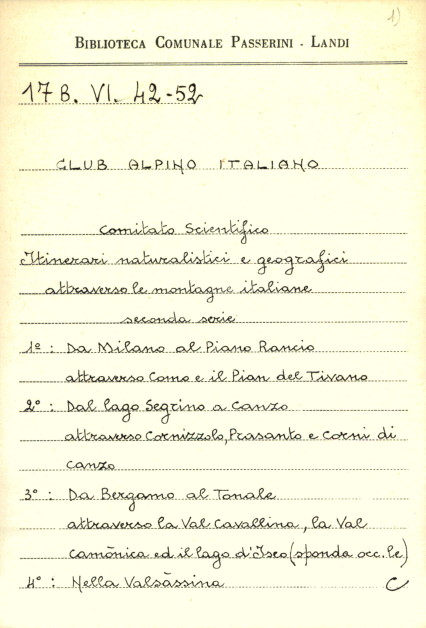 1)
BIBLIOTECA COMUNALE PASSERINI - LANDI
17 B. VI. 42-52
CLUB ALPINO ITALIANO
Comitato Scientifico
Itinerari naturalistici e geografici
attraverso le montagne italiane
seconda serie
1º : Da Milano al Piano Rancio
attraverso Como e il Pian del Tivano
2º : Dal lago Segrino a Canzo
attraverso Cornizzolo, Prasanto e Corni di
Canzo
3º : Da Bergamo al Tonale
attraverso la Val Cavallina, la Val
Camònica ed il lago d'Iseo (sponda occ.le)
4º : Nella Valsàssina